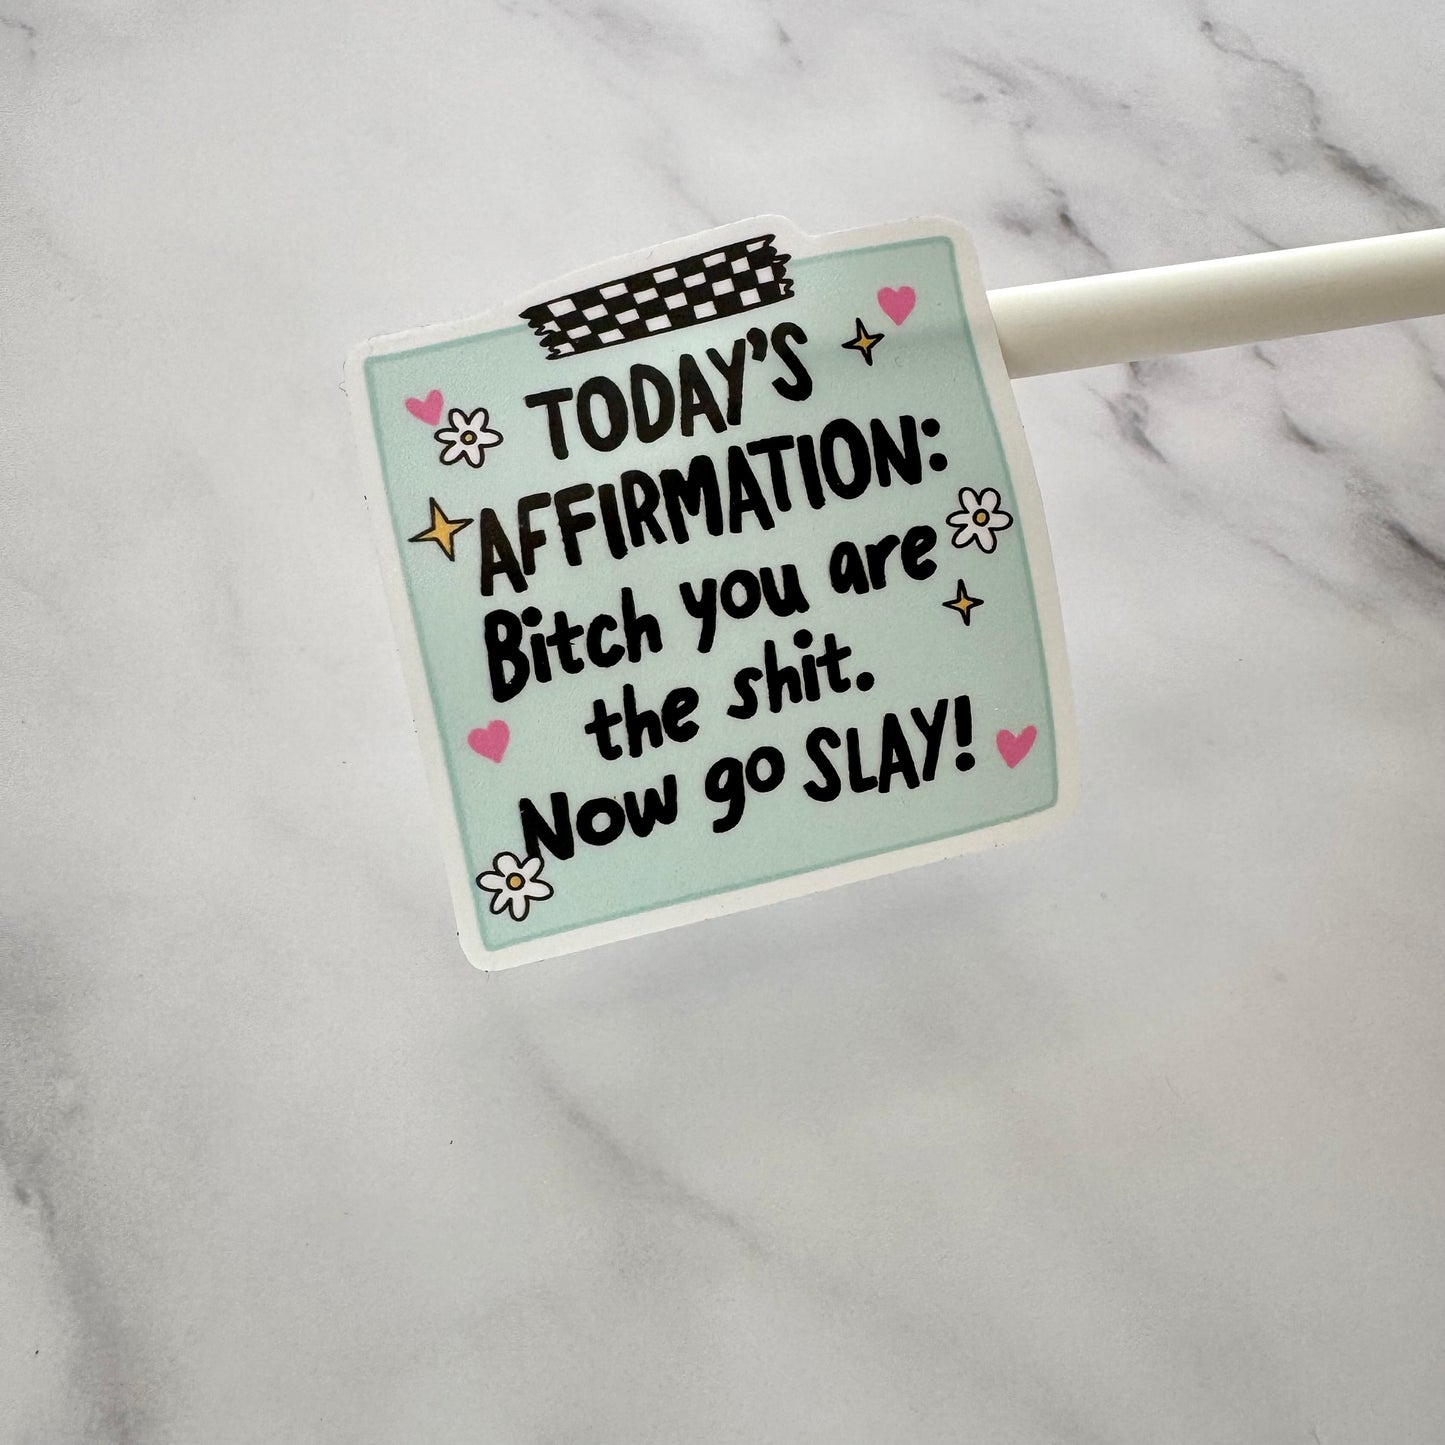 TODAY'S
AFFIRMATION:
Bitch you are
the shit.
Now go SLAY!